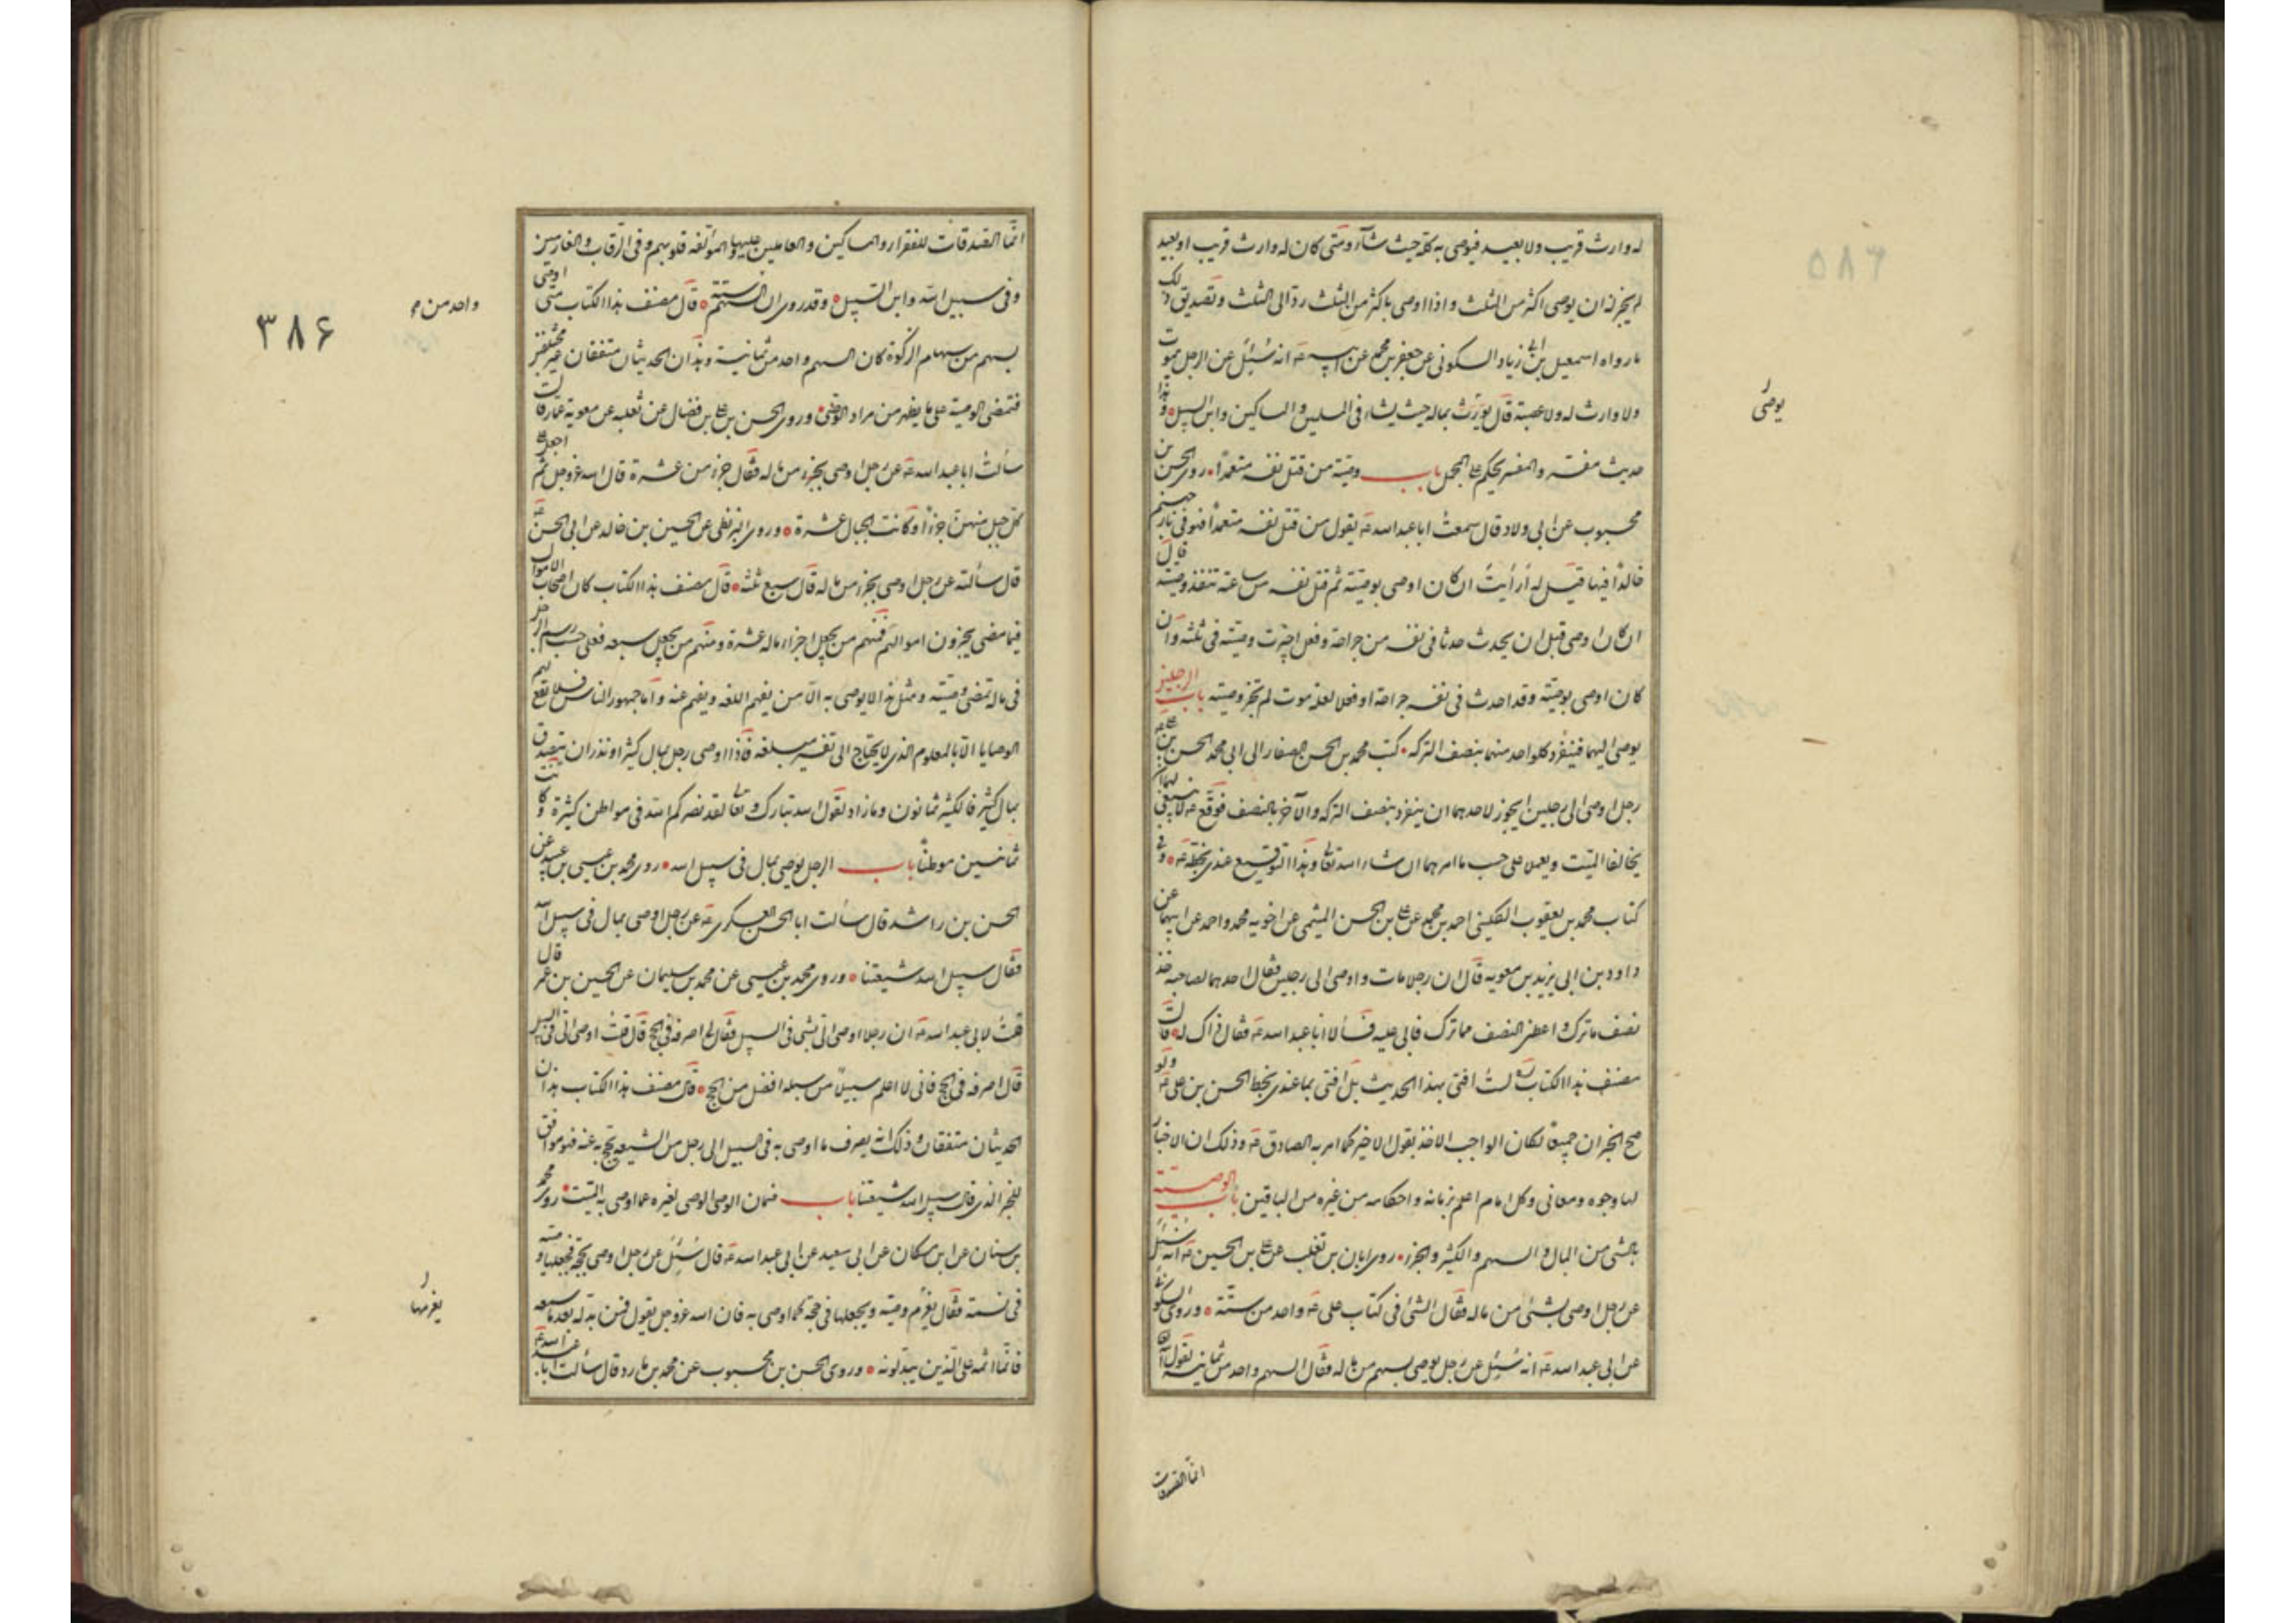 له وارث قريب ولا بعيد فيوصى به كله حيث شاء ومتى كان له وارث قريب او بعيد
لم يجز له ان يوصى اكثر من الثلث واذا اوصى باكثر من الثلث رد الى الثلث وتصديق ذلك
ما رواه اسمعيل بن ابى زياد السكونى عن جعفر بن محمد عن ابيه ع انه سُئِل عن الرجل يموت
ولا وارث له ولا عصبة قال يورث بماله حيث يشاء فى المسلمين والمساكين وابن السبيل وهذا
حديث مفسر والمفسر يحكم على المجمل باب وصية من قتل نفسه متعمداً روى الحسن بن
محبوب عن ابى ولاد قال سمعت ابا عبد الله ع يقول من قتل نفسه متعمداً فهو فى نار جهنم
خالداً فيها قيل له أرأيت ان كان اوصى بوصية ثم قتل نفسه من ساعته تنفذ وصيته قال
ان كان اوصى قبل ان يحدث حدثا فى نفسه من جراحة وفعل اجيزت وصيته فى ثلثه وان
كان اوصى بوصية وقد احدث فى نفسه جراحة او فعلا لعله يموت لم تجز وصيته باب الرجلين
يوصى اليهما فينفرد كل واحد منهما بنصف التركه كتب محمد بن الحسن الصفار الى ابى محمد الحسن بن على ع
رجل اوصى الى رجلين ايجوز لاحدهما ان ينفرد بنصف التركه والآخر بالنصف فوقع ع لا ينبغى لهما ان
يخالفا الميت ويعملا على حسب ما امرهما ان شاء الله تعالى وهذا التوقيع عندى بخطه ع وفى
كتاب محمد بن يعقوب الكلينى احمد بن محمد عن على بن الحسن الميثمى عن اخويه محمد واحمد عن ابيهما عن
داود بن ابى يزيد بن معويه قال ان رجلا مات واوصى الى رجلين فقال احدهما لصاحبه خذ
نصف ما ترك واعطنى النصف مما ترك فابى عليه فسألا ابا عبد الله ع فقال ذاك له قال
مصنف هذا الكتاب ره لست افتى بهذا الحديث بل افتى بما عندى بخط الحسن بن على ع ولو
صح الخبران جميعاً لكان الواجب الاخذ بقول الاخير كما امر به الصادق ع وذلك ان الاخبار
لها وجوه ومعانى وكل امام اعلم بزمانه واحكامه من غيره من الباقين باب الوصية
بالشئ من المال والسهم والكثير والجزء روى ابان بن تغلب عن على بن الحسين ع انه سُئِل
عن رجل اوصى بشئ من ماله فقال الشئ فى كتاب على ع واحد من ستة وروى السكونى
عن ابى عبد الله ع انه سُئِل عن رجل يوصى بسهم من ماله فقال السهم واحد من ثمانية لقول الله
انما الصدقات
يوصى
انما الصدقات للفقراء والمساكين والعاملين عليها والمؤلفة قلوبهم وفى الرقاب والغارمين
وفى سبيل الله وابن السبيل وقد روى ان السهم ستة قال مصنف هذا الكتاب متى اوصى
بسهم من سهام الزكوة كان السهم واحد من ثمانية وهذان الحديثان متفقان غير مختلفين
فتمضى الوصية على ما يظهر من مراد الموصى وروى الحسن بن على بن فضال عن ثعلبه عن معوية عمار قال
سألت ابا عبد الله ع عن رجل اوصى بجزء من ماله فقال جزء من عشرة قال الله عز وجل ثم اجعل على
كل جبل منهن جزءاً وكانت الجبال عشرة وروى البزنطى عن الحسين بن خالد عن ابى الحسن ع
قال سألته عن رجل اوصى بجزء من ماله قال سبع ثلثه قال مصنف هذا الكتاب كان اصحاب الاموال
فيما مضى يجزون اموالهم فمنهم من يجعل اجزاء ماله عشرة ومنهم من يجعل سبعه فعلى حسب رسم الرجل
فى ماله تمضى وصيته ومثل هذا لا يوصى به الا من يفهم اللغه ويفهم عنه واما جمهور الناس فلا تقع لهم
الوصايا الا بالمعلوم الذى لا يحتاج الى تفسير مبلغه فاذا اوصى رجل بمال كثير او نذر ان يتصدق
بمال كثير فالكثير ثمانون وما زاد لقول الله تبارك وتعالى لقد نصركم الله فى مواطن كثيرة وكانت
ثمانين موطناً باب الرجل يوصى بمال فى سبيل الله روى محمد بن عيسى بن عبيد عن
الحسن بن راشد قال سألت ابا الحسن العسكرى ع عن رجل اوصى بمال فى سبيل الله
فقال سبيل الله شيعتنا وروى محمد بن عيسى عن محمد بن سليمان عن الحسين بن عمر قال
قلت لابى عبد الله ع ان رجلا اوصى الى بشئ فى السبيل فقال لى اصرفه فى الحج قال قلت اوصى الى فى السبيل
قال اصرفه فى الحج فانى لا اعلم سبيلاً من سبله افضل من الحج قال مصنف هذا الكتاب هذان
الحديثان متفقان وذلك انه يصرف ما اوصى به فى السبيل الى رجل من الشيعه يحج به عنه فهو موافق
للخبر الذى قال سبيل الله شيعتنا باب ضمان الوصى الوصى لغيره عما اوصى به الميت روى محمد
بن سنان عن ابن مسكان عن ابى سعيد عن ابى عبد الله ع قال سُئِل عن رجل اوصى بحجة فجعلها وصيه
فى نسمة فقال يغرم وصيه ويجعلها فى حجة كما اوصى به فان الله عز وجل يقول فمن بدله بعد ما سمعه
فانما اثمه على الذين يبدلونه وروى الحسن بن محبوب عن محمد بن مارد قال سألت ابا عبد الله ع
واحد من م
٣٨۶
يغرمها